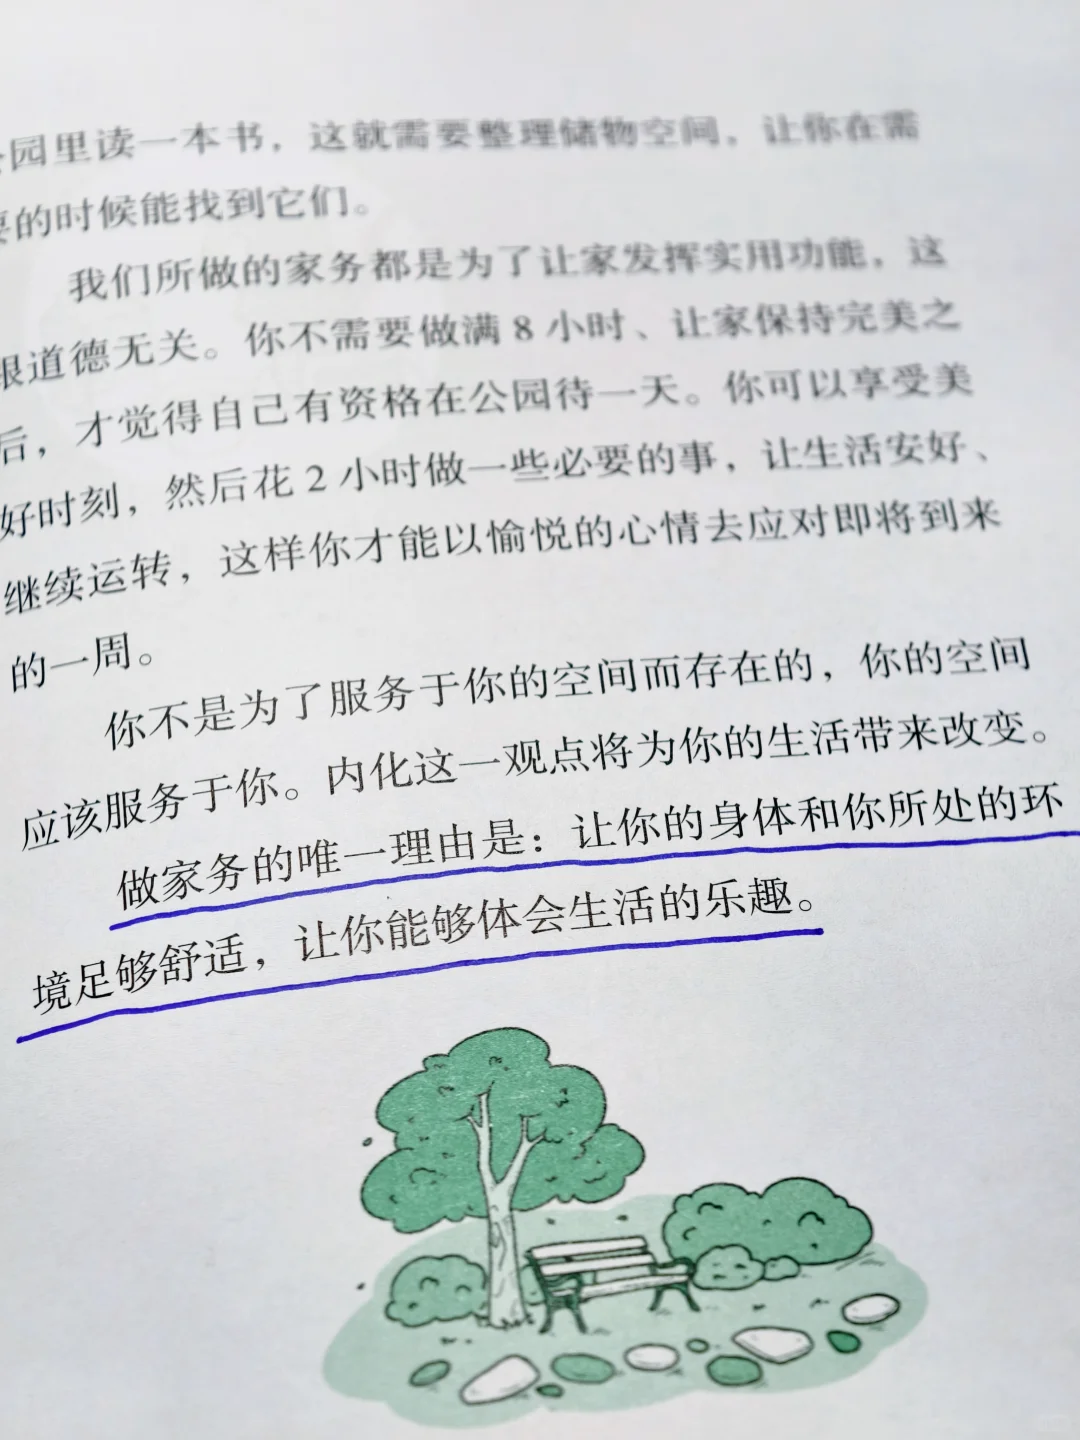 公园里读一本书，这就需要整理储物空间，让你在需
要的时候能找到它们。
我们所做的家务都是为了让家发挥实用功能，这
跟道德无关。你不需要做满 8 小时、让家保持完美之
后，才觉得自己有资格在公园待一天。你可以享受美
好时刻，然后花 2 小时做一些必要的事，让生活安好、
继续运转，这样你才能以愉悦的心情去应对即将到来
的一周。
你不是为了服务于你的空间而存在的，你的空间
应该服务于你。内化这一观点将为你的生活带来改变。
做家务的唯一理由是：让你的身体和你所处的环
境足够舒适，让你能够体会生活的乐趣。